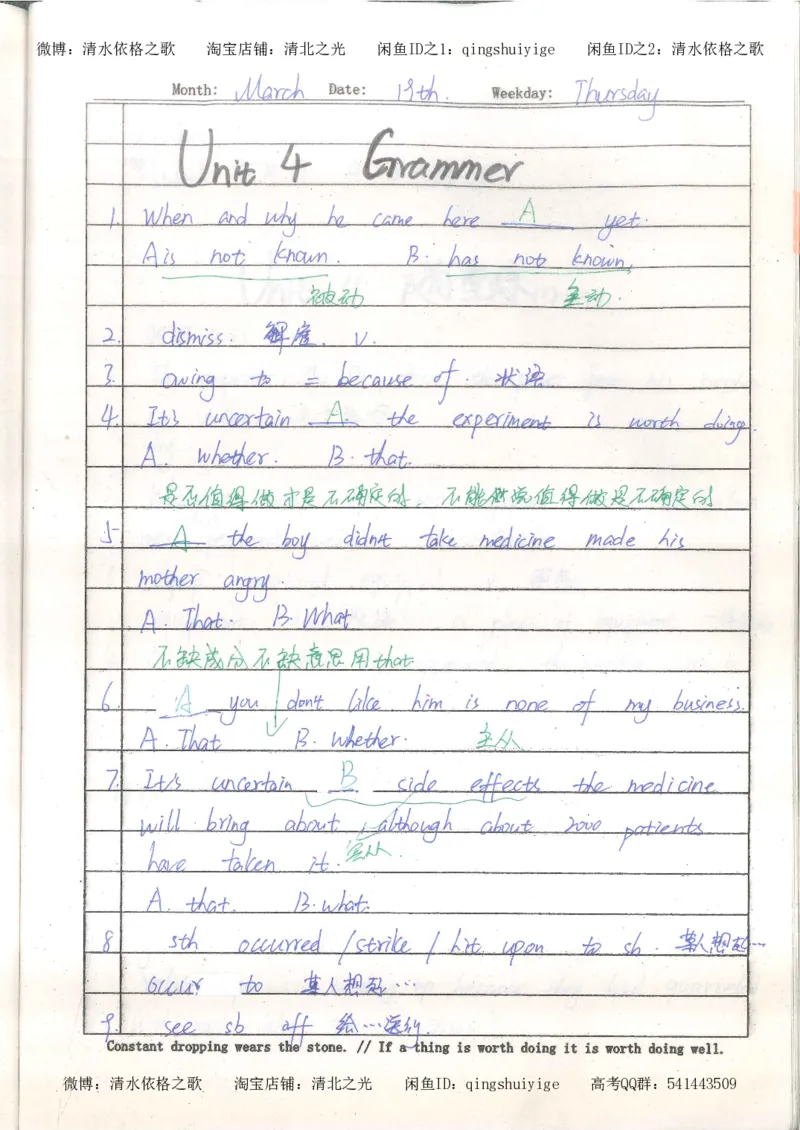 微博：清水依格之歌 淘宝店铺：清北之光 闲鱼ID之1：qingshuiyige 闲鱼ID之2：清水依格之歌
Month: March Date: 19th. Weekday: Thursday
Unit 4 Grammer
1. When and why he came here A yet.
A is not known. B. has not known.
被动 主动.
2. dismiss. 解雇. v.
3. owing to = because of. 状语
4. It's uncertain A. the experiment is worth doing.
A. whether. B. that.
是否值得做才是不确定的. 不能做说值得做是不确定的
5 A the boy didn't take medicine made his
mother angry.
A. That. B. What
不缺成分不缺意思用that
6. A you don't like him is none of my business.
A. That B. Whether. 主从
7. It's uncertain B side effects the medicine
will bring about, although about 2000 patients
have taken it.
A. that. B. what.
8 sth occurred / strike / hit upon to sb. 某人想起…
occur to 某人想起…
9. see sb off 给…送行.
Constant dropping wears the stone. // If a thing is worth doing it is worth doing well.
微博：清水依格之歌 淘宝店铺：清北之光 闲鱼ID：qingshuiyige 高考QQ群：541443509